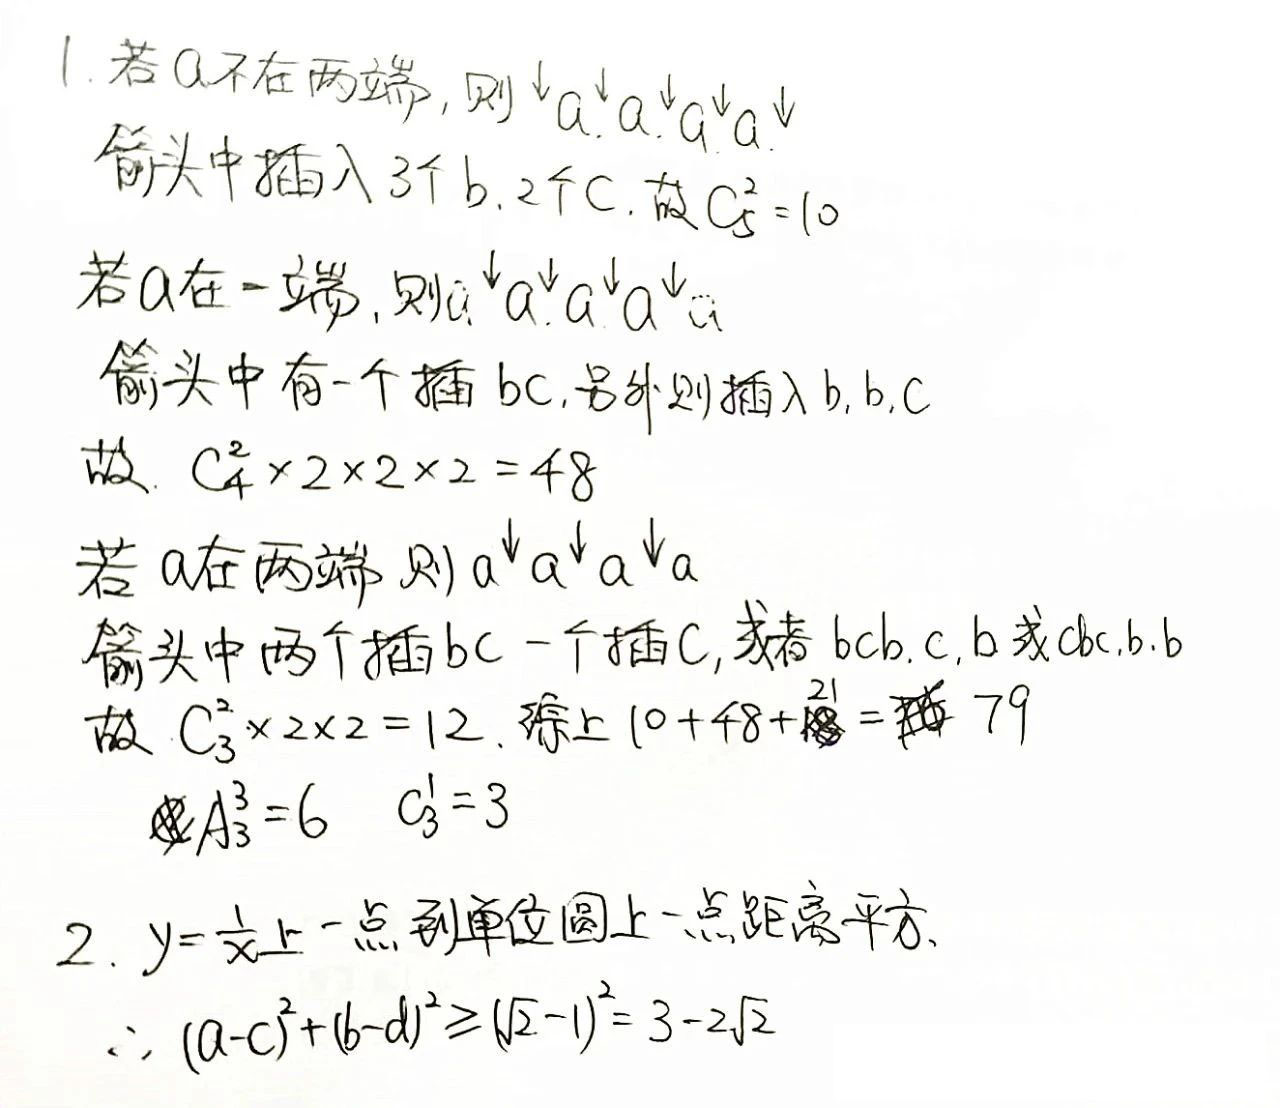 1. 若a不在两端, 则 ↓a.↓a.↓a↓a.↓
箭头中插入3个b.2个C.故C₅²=10
若a在一端,则a↓a↓a↓a↓a
箭头中有一个插bc,另外则插入b,b,C
故. C₄²×2×2×2=48
若a在两端 则a↓a↓a↓a
箭头中两个插bc一个插C,或者bcb.c,b或cbc,b.b
故 C₃²×2×2=12. 综上10+48+21= 79
A₃³=6 C₃¹=3
2. y=1/x上一点到单位圆上一点距离平方、
∴ (a-c)²+(b-d)²≥(√2-1)²=3-2√2